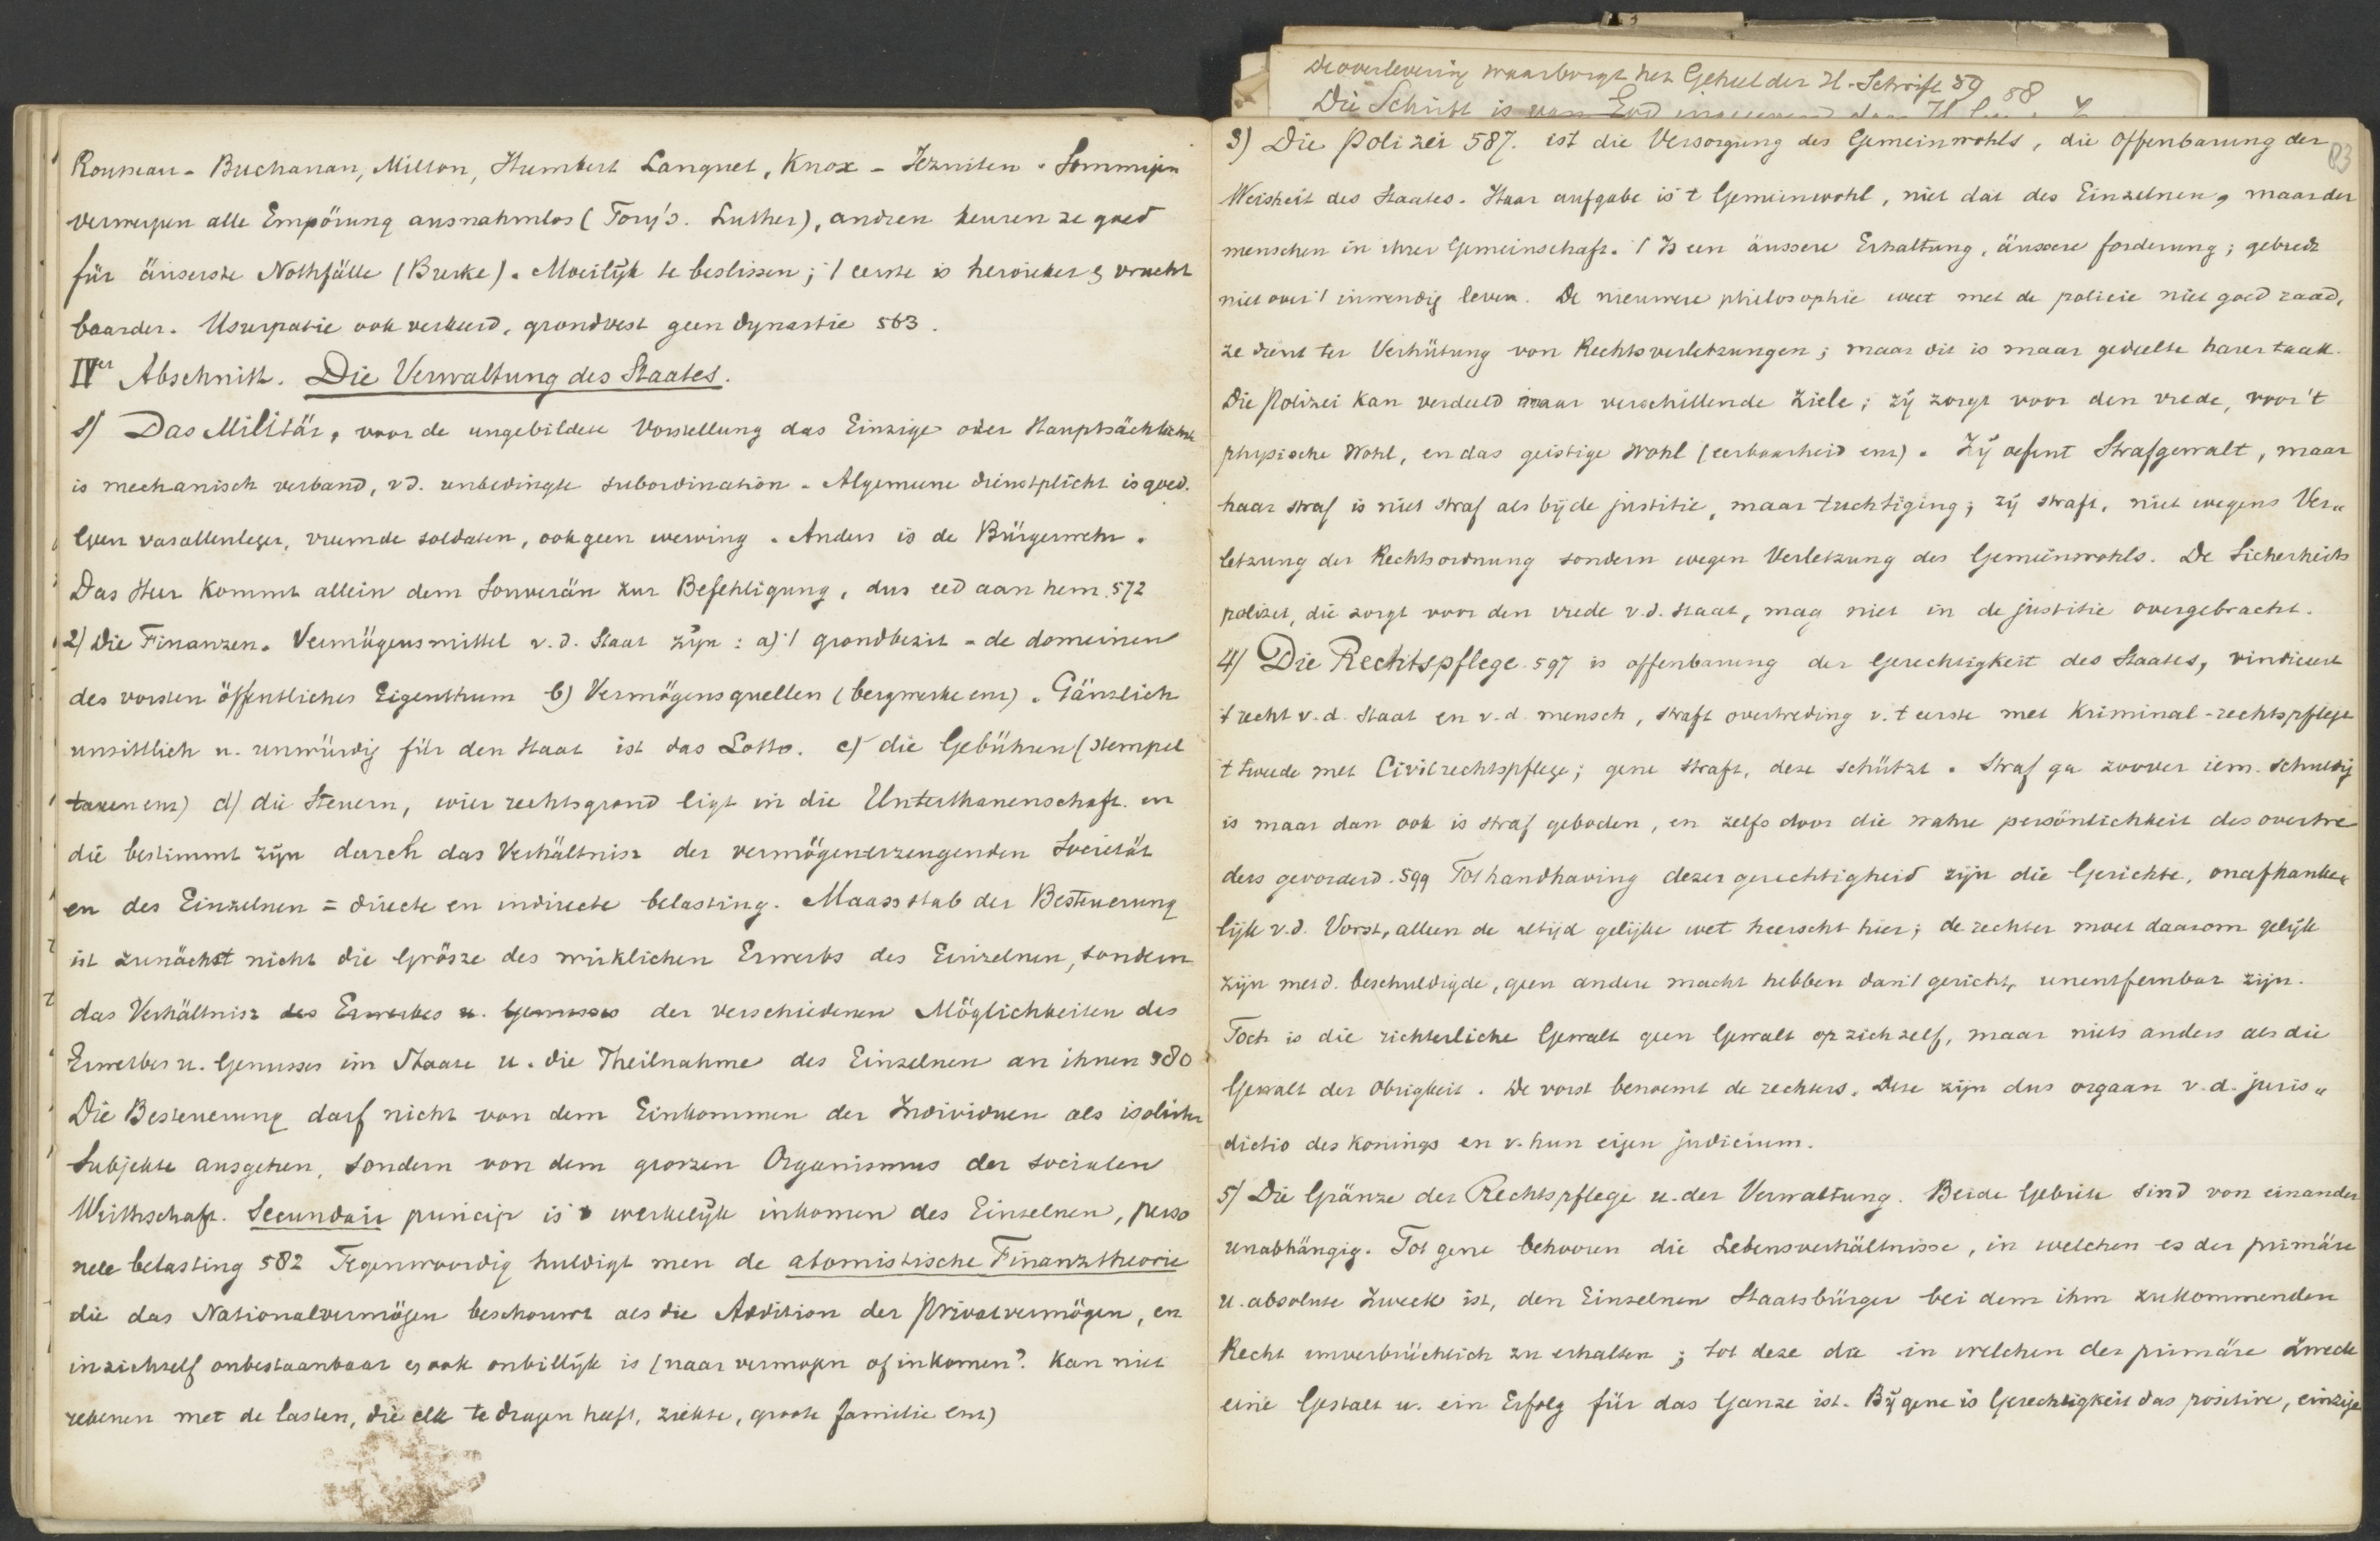 Rousseau - Buchanan, Milton, Humbert Languet, Knox - Jezuiten. Sommigen
verwerpen alle Empörung ausnahmlos (Tory's. Luther), andren keuren ze goed
für äuserste Nothfälle (Burke). Moeilijk te beslissen; 't eerste is heroieker en vrucht
baarder. Usurpatie ook verkeerd, grondvest geen dynastie 563.
IVer Abschnitt. Die Verwaltung des Staates.
1) Das Militär, voor de ungebildete Vorstellung das Einzige oder Hauptsächlichste
is mechanisch verband, v.d. unbedingte subordination. Algemeene dienstplicht is goed.
Geen vasallenleger, vreemde soldaten, ook geen werving. Anders is de Bürgerwehr.
Das Heer kommt allein dem Souverän zur Befehligung, dus eed aan hem. 572
2) Die Finanzen. Vermögensmittel v.d. Staat zijn: a) 't grondbezit - de domeinen
des vorsten öffentliches Eigenthum b) Vermögensquellen (bergwerke enz). Gänzlich
unsittlich u. unwürdig für den Staat ist das Lotto. c) die Gebühren (stempel
taxen enz) d) die Steuern, wier rechtsgrond ligt in die Unterthanenschaft. en
die bestimmt zijn durch das Verhältnisz der vermögenerzeugenden Societät
en des Einzelnen = directe en indirecte belasting. Maassstab der Besteuerung
ist zunächst nicht die Grösze des wirklichen Erwerbs des Einzelnen, sondern
das Verhältnisz des Erwerbes u. Genusses der verschiedenen Möglichkeiten des
Erwerbes u. Genusses im Staate u. die Theilnahme des Einzelnen an ihnen 580
Die Besteuerung darf nicht von dem Einkommen der Individuen als isolirter
Subjekte ausgehen, sondern von dem groszen Organismus der socialen
Wirthschaft. Secundair princip is werkelijk inkomen des Einzelnen, perso
neele belasting 582 Tegenwoordig huldigt men de atomistische Finanztheorie
die das Nationalvermögen beschouwt als die Addition der Privatvermögen, en
in zichself onbestaanbaar en ook onbillijk is (naar vermogen of inkomen? Kan niet
rekenen met de lasten, die elk te dragen heeft, ziekte, groote familie enz)
De overlevering waarborgt het Geheel der H. Schrift 59 58
Die Schrift is van God
83
3) Die Polizei 587. ist die Versorgung des Gemeinwohls, die Offenbarung der
Weisheit des Staates. Haar aufgabe is 't Gemeinwohl, niet dat des Einzelnen, maar der
menschen in ihrer Gemeinschaft. 't Is een äussere Erhaltung, äussere forderung; gebiedt
niet over 't inwendig leven. De nieuwere philosophie weet met de policie niet goed raad,
ze dient ter Verhütung von Rechtsverletzungen; maar dit is maar gedeelte harer taak.
Die Polizei kan verdeeld naar verschillende Ziele; zij zorgt voor den vrede, voor 't
physische Wohl, en das geistige Wohl (eerbaarheid enz). Zij oefent Strafgewalt, maar
haar straf is niet straf als bij de justitie, maar tuchtiging; zij straft, niet wegens Ver-
letzung der Rechtsordnung sondern wegen Verletzung des Gemeinwohls. De Sicherheits
polizei, die zorgt voor den vrede v.d. staat, mag niet in de justitie overgebracht.
4) Die Rechtspflege 597 is offenbarung der Gerechtigkeit des Staates, vindiceert
't recht v.d. Staat en v.d. mensch, straft overtreding v. 't eerste met Kriminal-rechtspflege
't tweede met Civilrechtspflege; gene straft, deze schützt. Straf ga zoover iem. schuldig
is maar dan ook is straf geboden, en zelfs door die wahre persönlichkeit des overtre
ders gevorderd. 599 Tot handhaving dezer gerechtigheid zijn die Gerichte, onafhanke-
lijk v.d. Vorst, alleen de altijd gelijke wet heerscht hier; de rechter moet daarom gelijk
zijn met d. beschuldigde, geen andere macht hebben dan 't gericht, unentfernbar zijn.
Toch is die richterliche Gewalt geen Gewalt op zich zelf, maar niets anders als die
Gewalt der Obrigkeit. De vorst benoemt de rechters. Deze zijn dus orgaan v.d. juris-
dictio des Konings en v. hun eigen judicium.
5) Die Gränze der Rechtspflege u. der Verwaltung. Beide Gebiete sind von einander
unabhängig. Tot gene behooren die Lebensverhältnisse, in welchen es der primäre
u. absolute Zweck ist, den Einzelnen Staatsbürger bei dem ihm zukommenden
Recht unverbrüchlich zu erhalten; tot deze die in welchen der primäre Zweck
eine Gestalt u. ein Erfolg für das Ganze ist. Bij gene is Gerechtigkeit das positive, einzige